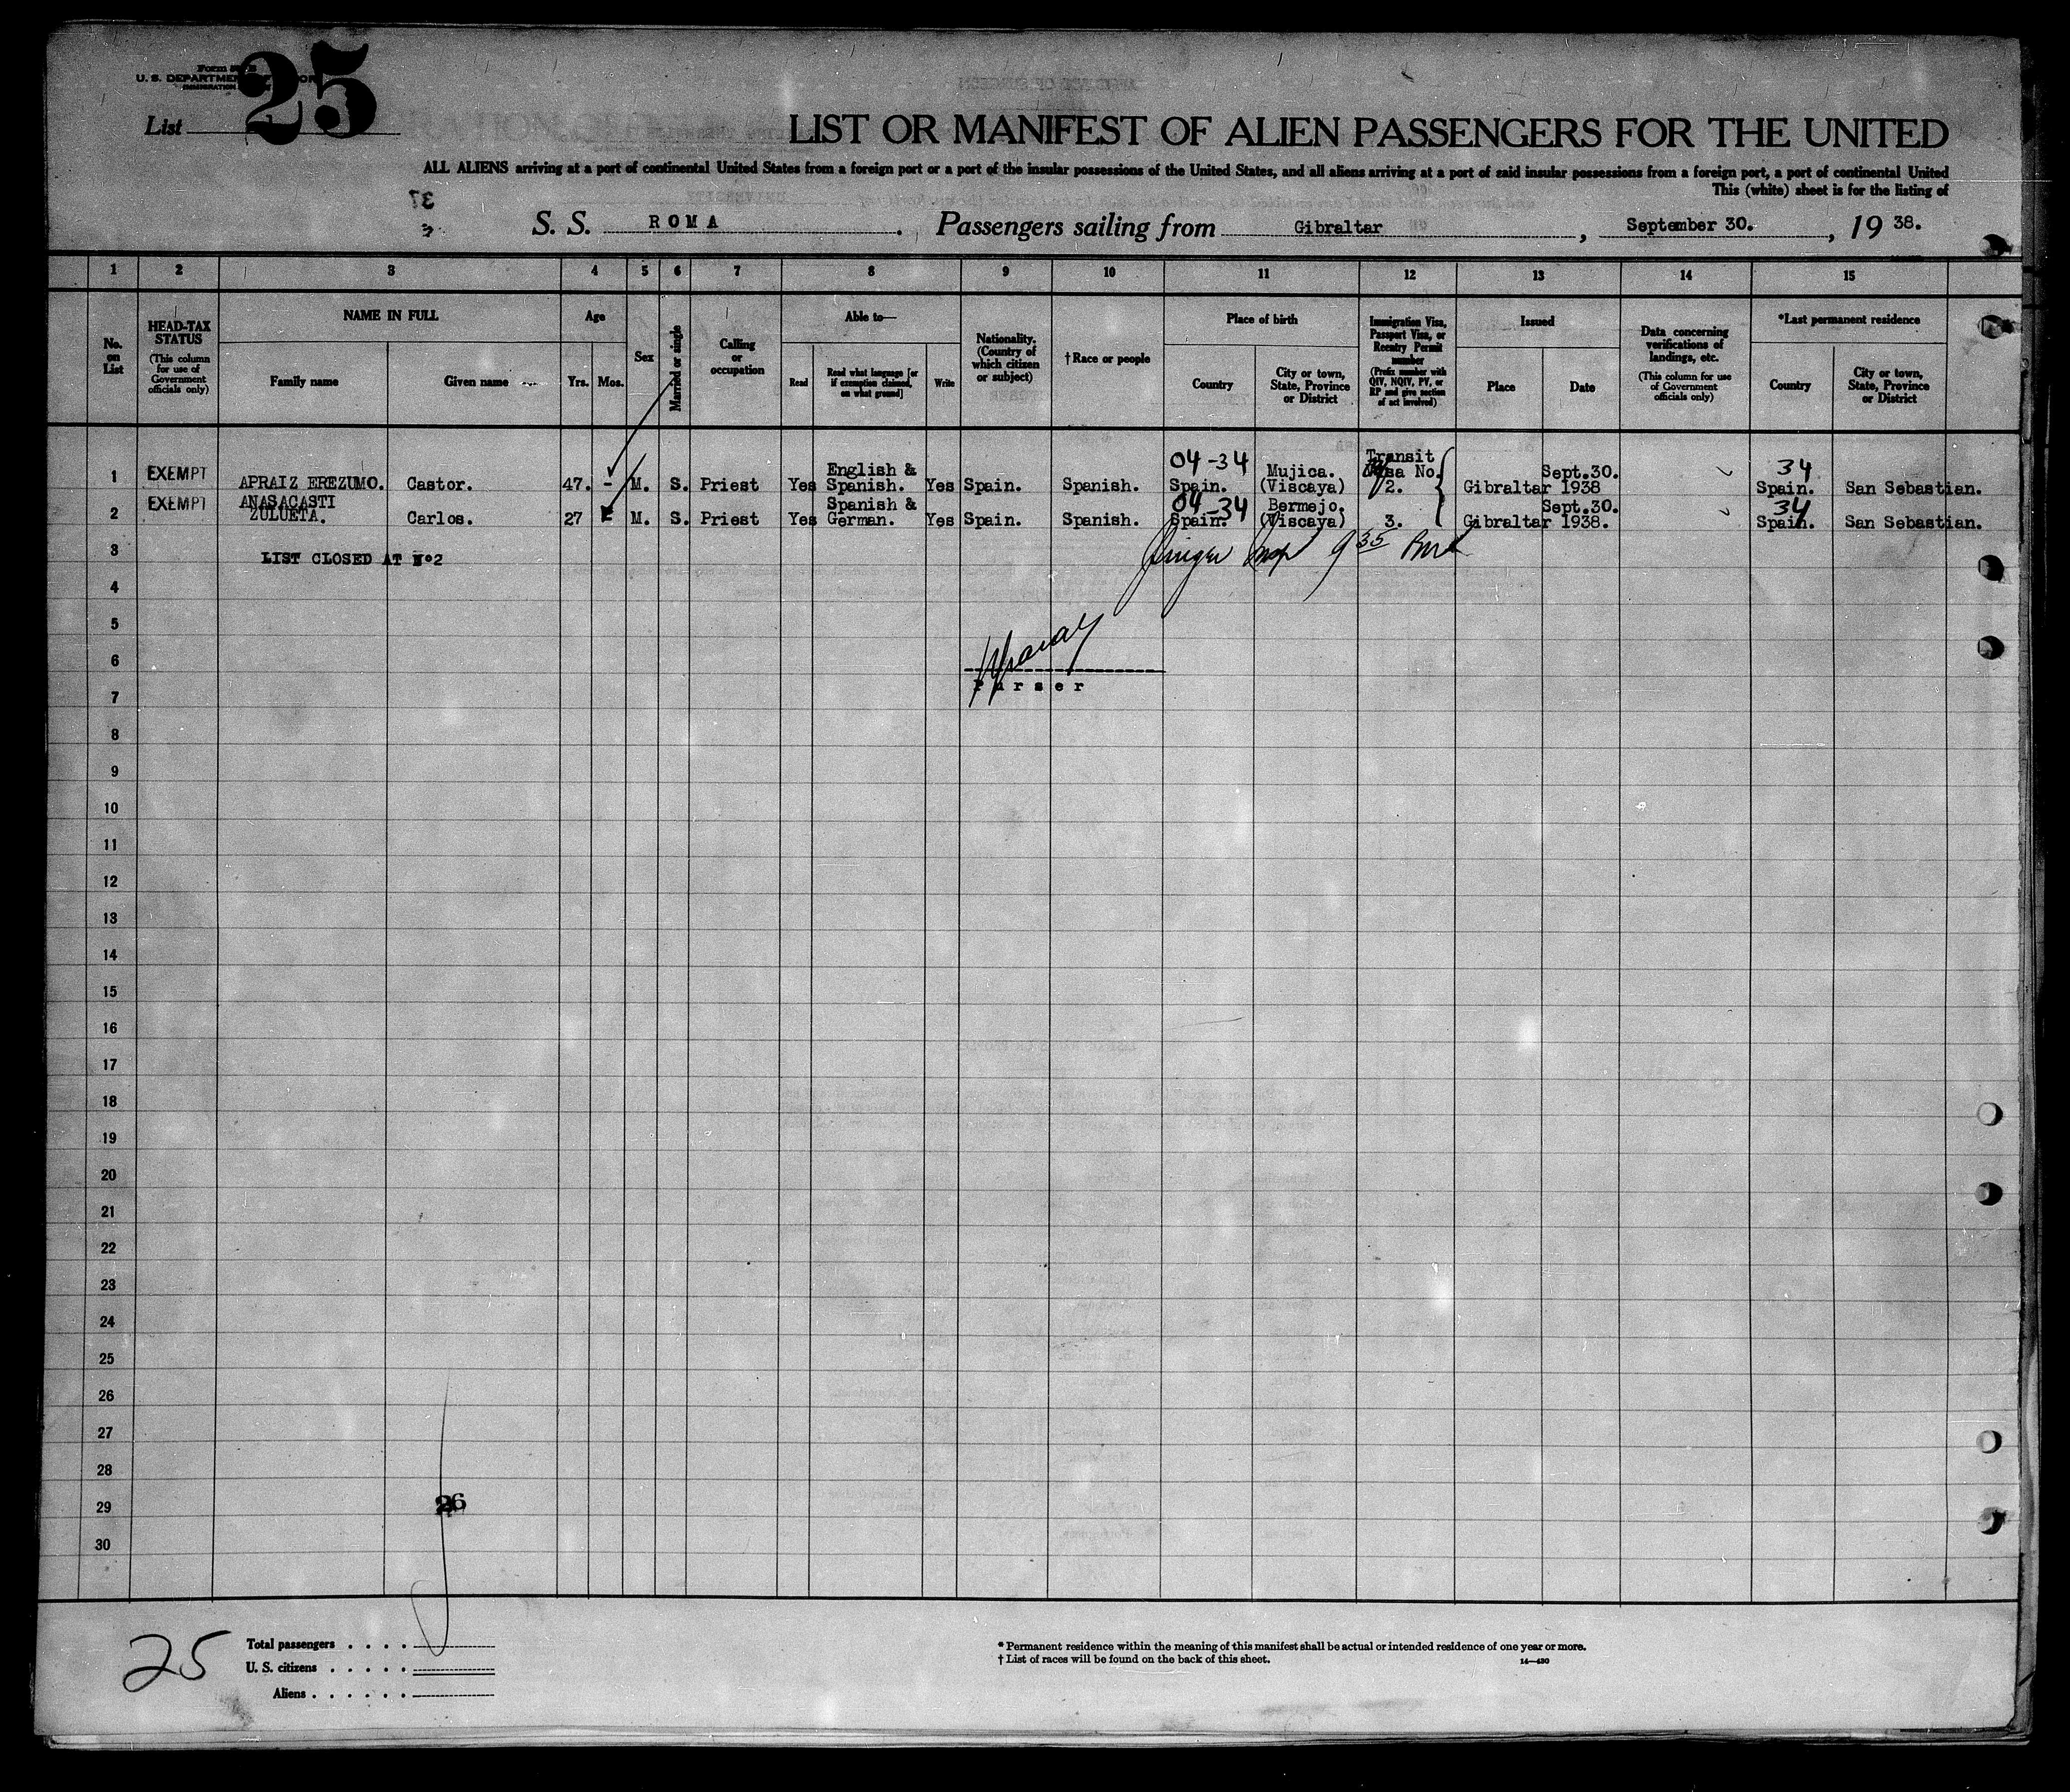 Form
U. S. DEPARTMENT OF LABOR
IMMIGRATION
25
List
LIST OR MANIFEST OF ALIEN PASSENGERS FOR THE UNITED
ALL ALIENS arriving at a port of continental United States from a foreign port or a port of the insular possessions of the United States, and all aliens arriving at a port of said insular possessions from a foreign port, a port of continental United
This (white) sheet is for the listing of
S. S. ROMA. Passengers sailing from Gibraltar, September 30., 19 38.
1 2 3 4 5 6 7 8 9 10 11 12 13 14 15
No. on List
HEAD-TAX STATUS (This column for use of Government officials only)
NAME IN FULL
Family name Given name
Age
Yrs. Mos.
Sex
Married or single
Calling or occupation
Able to—
Read Read what language [or if exemption claimed, on what ground] Write
Nationality. (Country of which citizen or subject)
†Race or people
Place of birth
Country City or town, State, Province or District
Immigration Visa, Passport Visa, or Reentry Permit number (Prefix number with QIV, NQIV, PV, or RP and give section of act involved)
Issued
Place Date
Data concerning verifications of landings, etc. (This column for use of Government officials only)
*Last permanent residence
Country City or town, State, Province or District
1 EXEMPT APRAIZ EREZUMO. Castor. 47. - M. S. Priest Yes English & Spanish. Yes Spain. Spanish. 04-34 Spain. Mujica. (Viscaya) Transit Visa No. 2. Gibraltar Sept.30. 1938 34 Spain. San Sebastian.
2 EXEMPT ANASACASTI ZULUETA. Carlos. 27 - M. S. Priest Yes Spanish & German. Yes Spain. Spanish. 04-34 Spain. Bermejo. (Viscaya) 3. Gibraltar Sept.30. 1938. 34 Spain. San Sebastian.
3 LIST CLOSED AT Nº2
4
5
6
Purser
7
8
9
10
11
12
13
14
15
16
17
18
19
20
21
22
23
24
25
26
27
28
29
26
30
25
Total passengers . . . .
U. S. citizens . . . . .
Aliens . . . . . .
* Permanent residence within the meaning of this manifest shall be actual or intended residence of one year or more.
† List of races will be found on the back of this sheet.
14—430